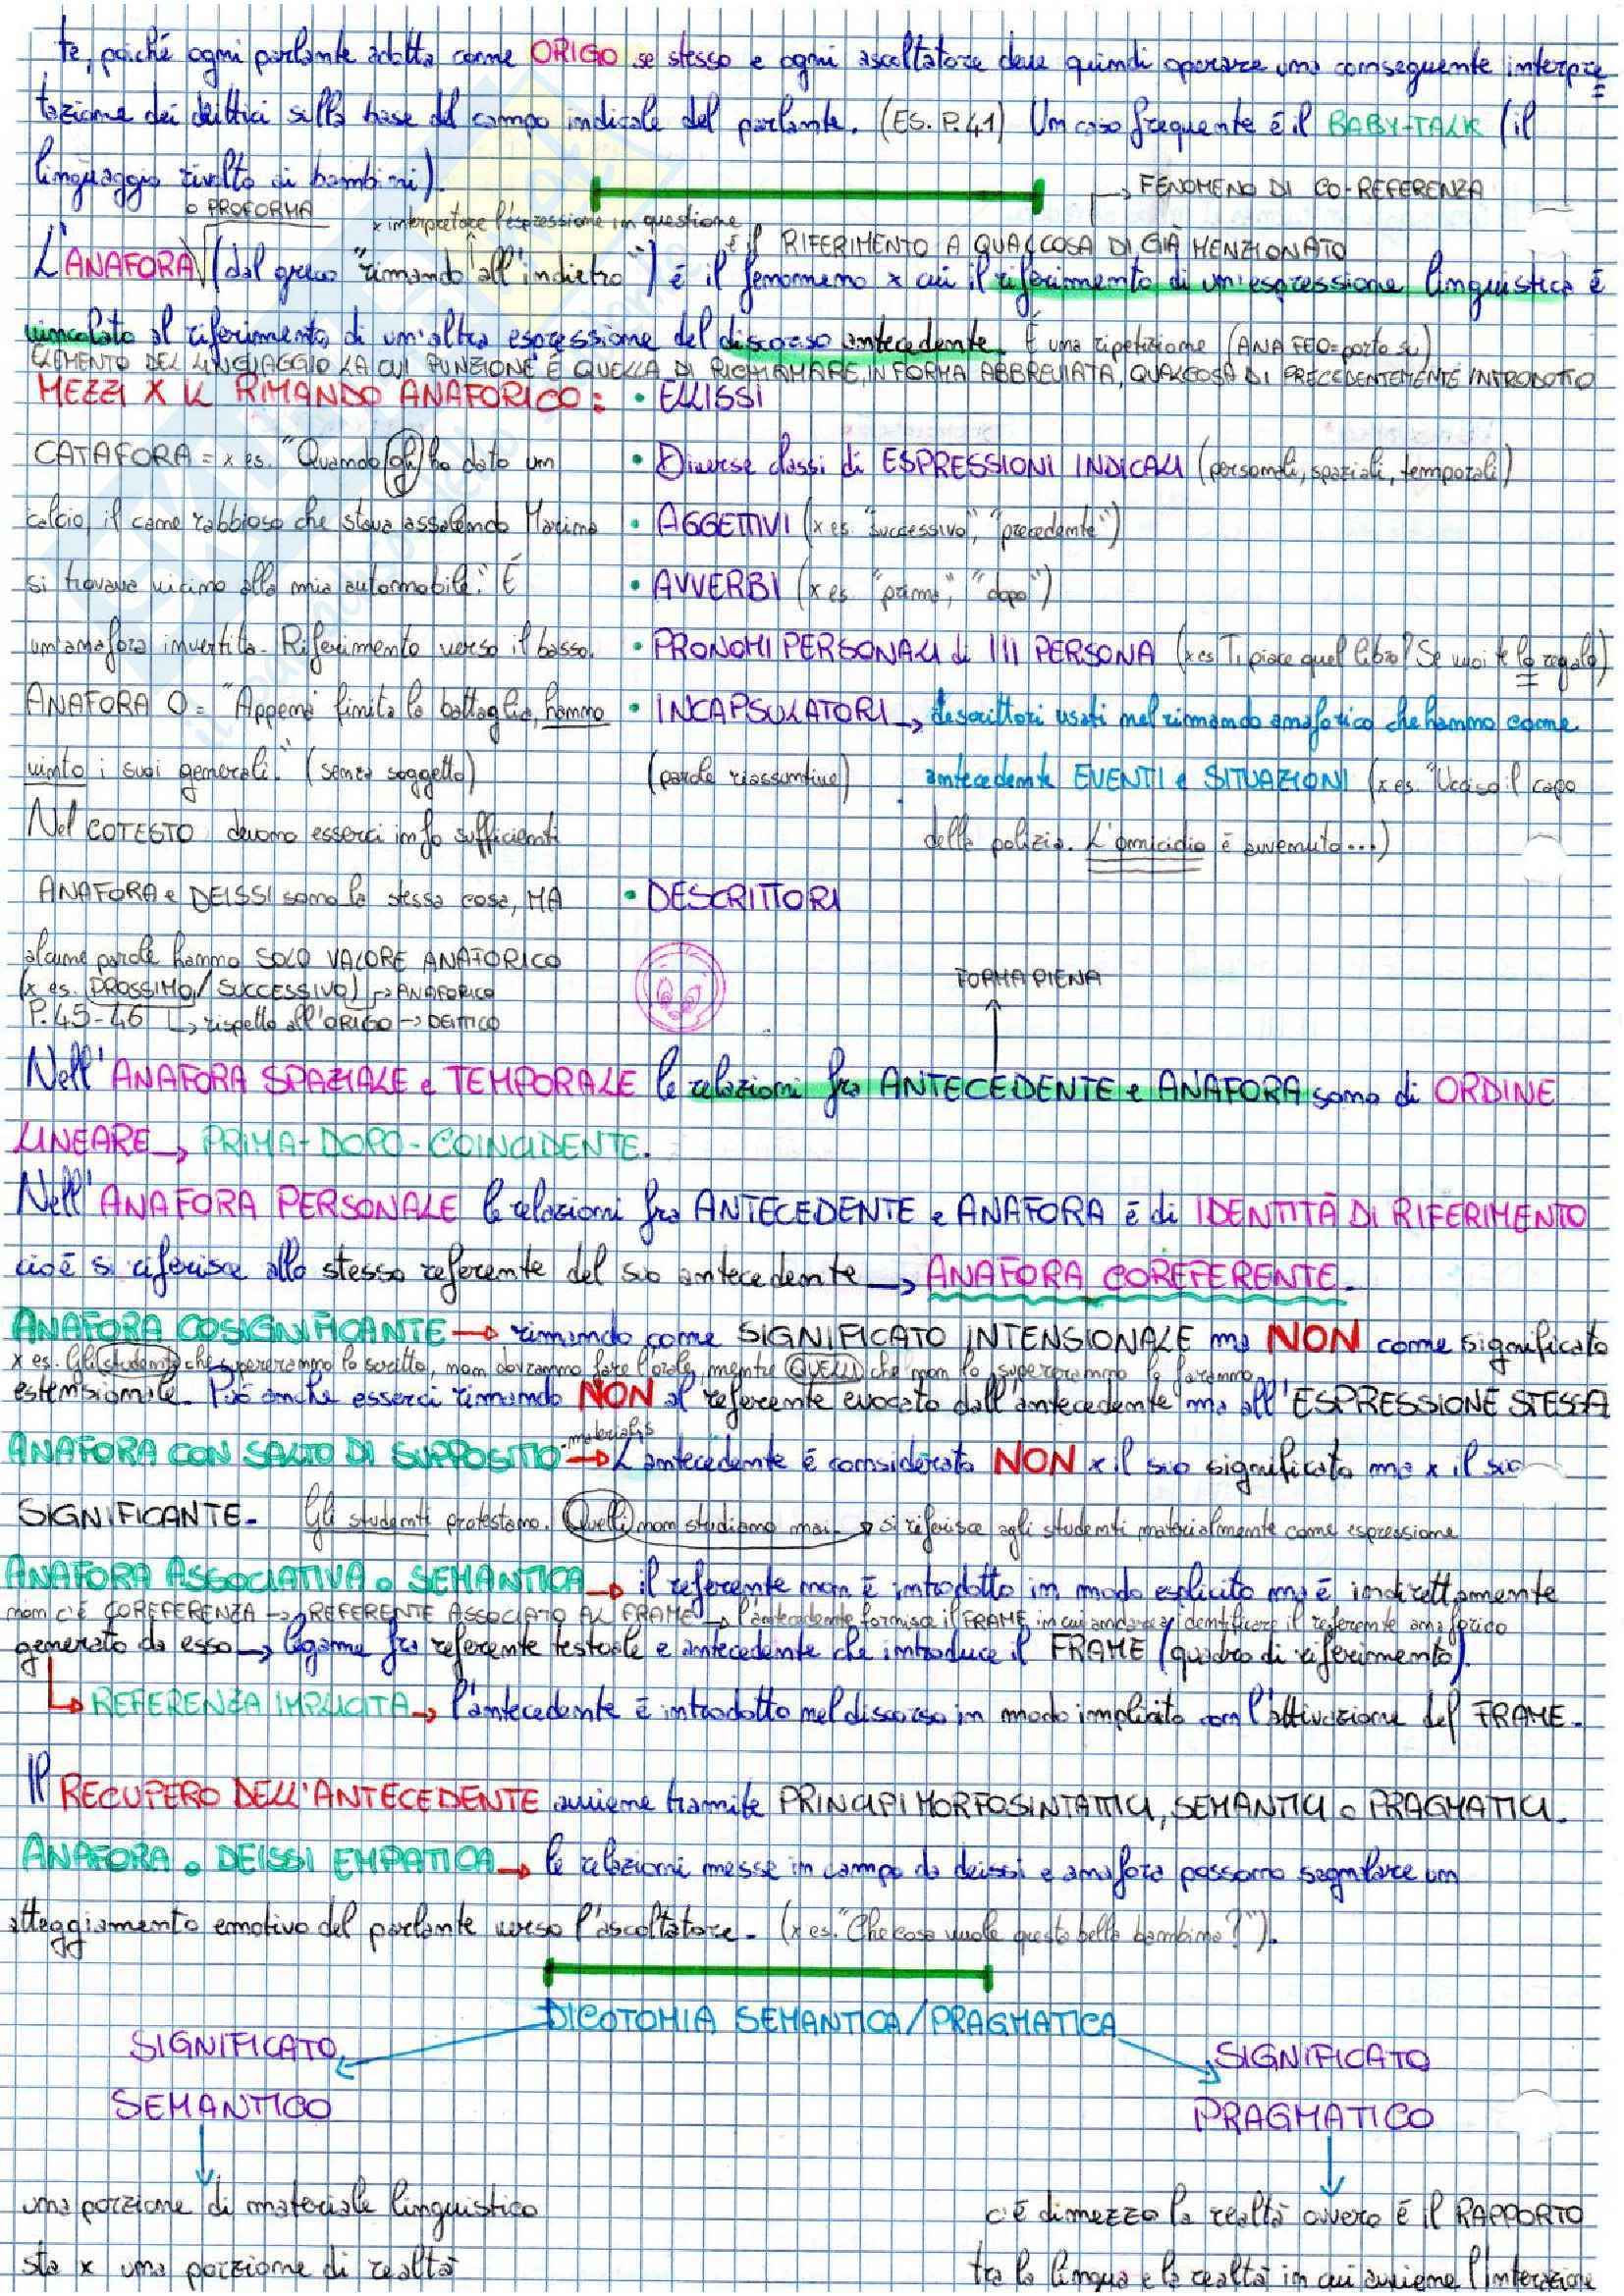 te, poiché ogni parlante adotta come ORIGO se stesso e ogni ascoltatore deve quindi operare una conseguente interpre
tazione dei deittici sulla base del campo indicale del parlante. (ES. P.41) Un caso frequente è il BABY-TALK (il
linguaggio rivolto ai bambini).
→ FENOMENO DI CO-REFERENZA
o PROFORMA
x interpretare l'espressione in questione
è il RIFERIMENTO A QUALCOSA DI GIÀ MENZIONATO
L'ANAFORA (dal greco "rimando all'indietro") è il fenomeno x cui il riferimento di un'espressione linguistica è
vincolato al riferimento di un'altra espressione del discorso antecedente. È una ripetizione (ANA FEO=porto su)
ELEMENTO DEL LINGUAGGIO LA CUI FUNZIONE È QUELLA DI RICHIAMARE, IN FORMA ABBREVIATA, QUALCOSA DI PRECEDENTEMENTE INTRODOTTO
MEZZI X IL RIMANDO ANAFORICO: • ELLISSI
CATAFORA = x es. "Quando gli ho dato un
calcio, il cane rabbioso che stava assalendo Marina
si trovava vicino alla mia automobile." È
un'anafora invertita. Riferimento verso il basso.
ANAFORA 0 = "Appena finita la battaglia, hanno
vinto i suoi generali." (senza soggetto)
Nel COTESTO devono esserci info sufficienti
ANAFORA e DEISSI sono la stessa cosa, MA
alcune parole hanno SOLO VALORE ANAFORICO
(x es. PROSSIMO/SUCCESSIVO) → ANAFORICO
P. 45-46 → rispetto all'ORIGO → DEITTICO
• Diverse classi di ESPRESSIONI INDICALI (personali, spaziali, temporali)
• AGGETTIVI (x es. "successivo", "precedente")
• AVVERBI (x es. "prima", "dopo")
• PRONOMI PERSONALI di III PERSONA (x es. Ti piace quel libro? Se vuoi te lo regalo)
• INCAPSULATORI → descrittori usati nel rimando anaforico che hanno come
(parole riassuntive) antecedente EVENTI e SITUAZIONI (x es. "Ucciso il capo
della polizia. L'omicidio è avvenuto...)
• DESCRITTORI
FORMA PIENA
Nell'ANAFORA SPAZIALE e TEMPORALE le relazioni fra ANTECEDENTE e ANAFORA sono di ORDINE
LINEARE → PRIMA-DOPO-COINCIDENTE.
Nell'ANAFORA PERSONALE le relazioni fra ANTECEDENTE e ANAFORA è di IDENTITÀ DI RIFERIMENTO
cioè si riferisce allo stesso referente del suo antecedente → ANAFORA COREFERENTE.
ANAFORA COSIGNIFICANTE → rimando come SIGNIFICATO INTENSIONALE ma NON come significato
x es. Gli studenti che supereranno lo scritto, non dovranno fare l'orale, mentre QUELLI che non lo supereranno lo faranno.
estensionale. Può anche esserci rimando NON al referente evocato dall'antecedente ma all'ESPRESSIONE STESSA
ANAFORA CON SALTO DI SUPPOSITIO materialis → L'antecedente è considerato NON x il suo significato ma x il suo
SIGNIFICANTE. Gli studenti protestano. Quelli non studiano mai. → si riferisce agli studenti materialmente come espressione
ANAFORA ASSOCIATIVA o SEMANTICA → il referente non è introdotto in modo esplicito ma è indirettamente
non c'è COREFERENZA → REFERENTE ASSOCIATO AL FRAME → l'antecedente fornisce il FRAME in cui andare a identificare il referente anaforico
generato da esso → legame fra referente testuale e antecedente che introduce il FRAME (quadro di riferimento).
→ REFERENZA IMPLICITA → l'antecedente è introdotto nel discorso in modo implicito con l'attivazione del FRAME.
Il RECUPERO DELL'ANTECEDENTE avviene tramite PRINCIPI MORFOSINTATTICI, SEMANTICI o PRAGMATICI.
ANAFORA o DEISSI EMPATICA → le relazioni messe in campo da deissi e anafora possono segnalare un
atteggiamento emotivo del parlante verso l'ascoltatore. (x es. "Che cosa vuole questo bello bambino?").
DICOTOMIA SEMANTICA/PRAGMATICA
SIGNIFICATO
SEMANTICO
una porzione di materiale linguistico
sta x una porzione di realtà
SIGNIFICATO
PRAGMATICO
c'è dimezzo la realtà ovvero è il RAPPORTO
tra la lingua e la realtà in cui avviene l'interazione